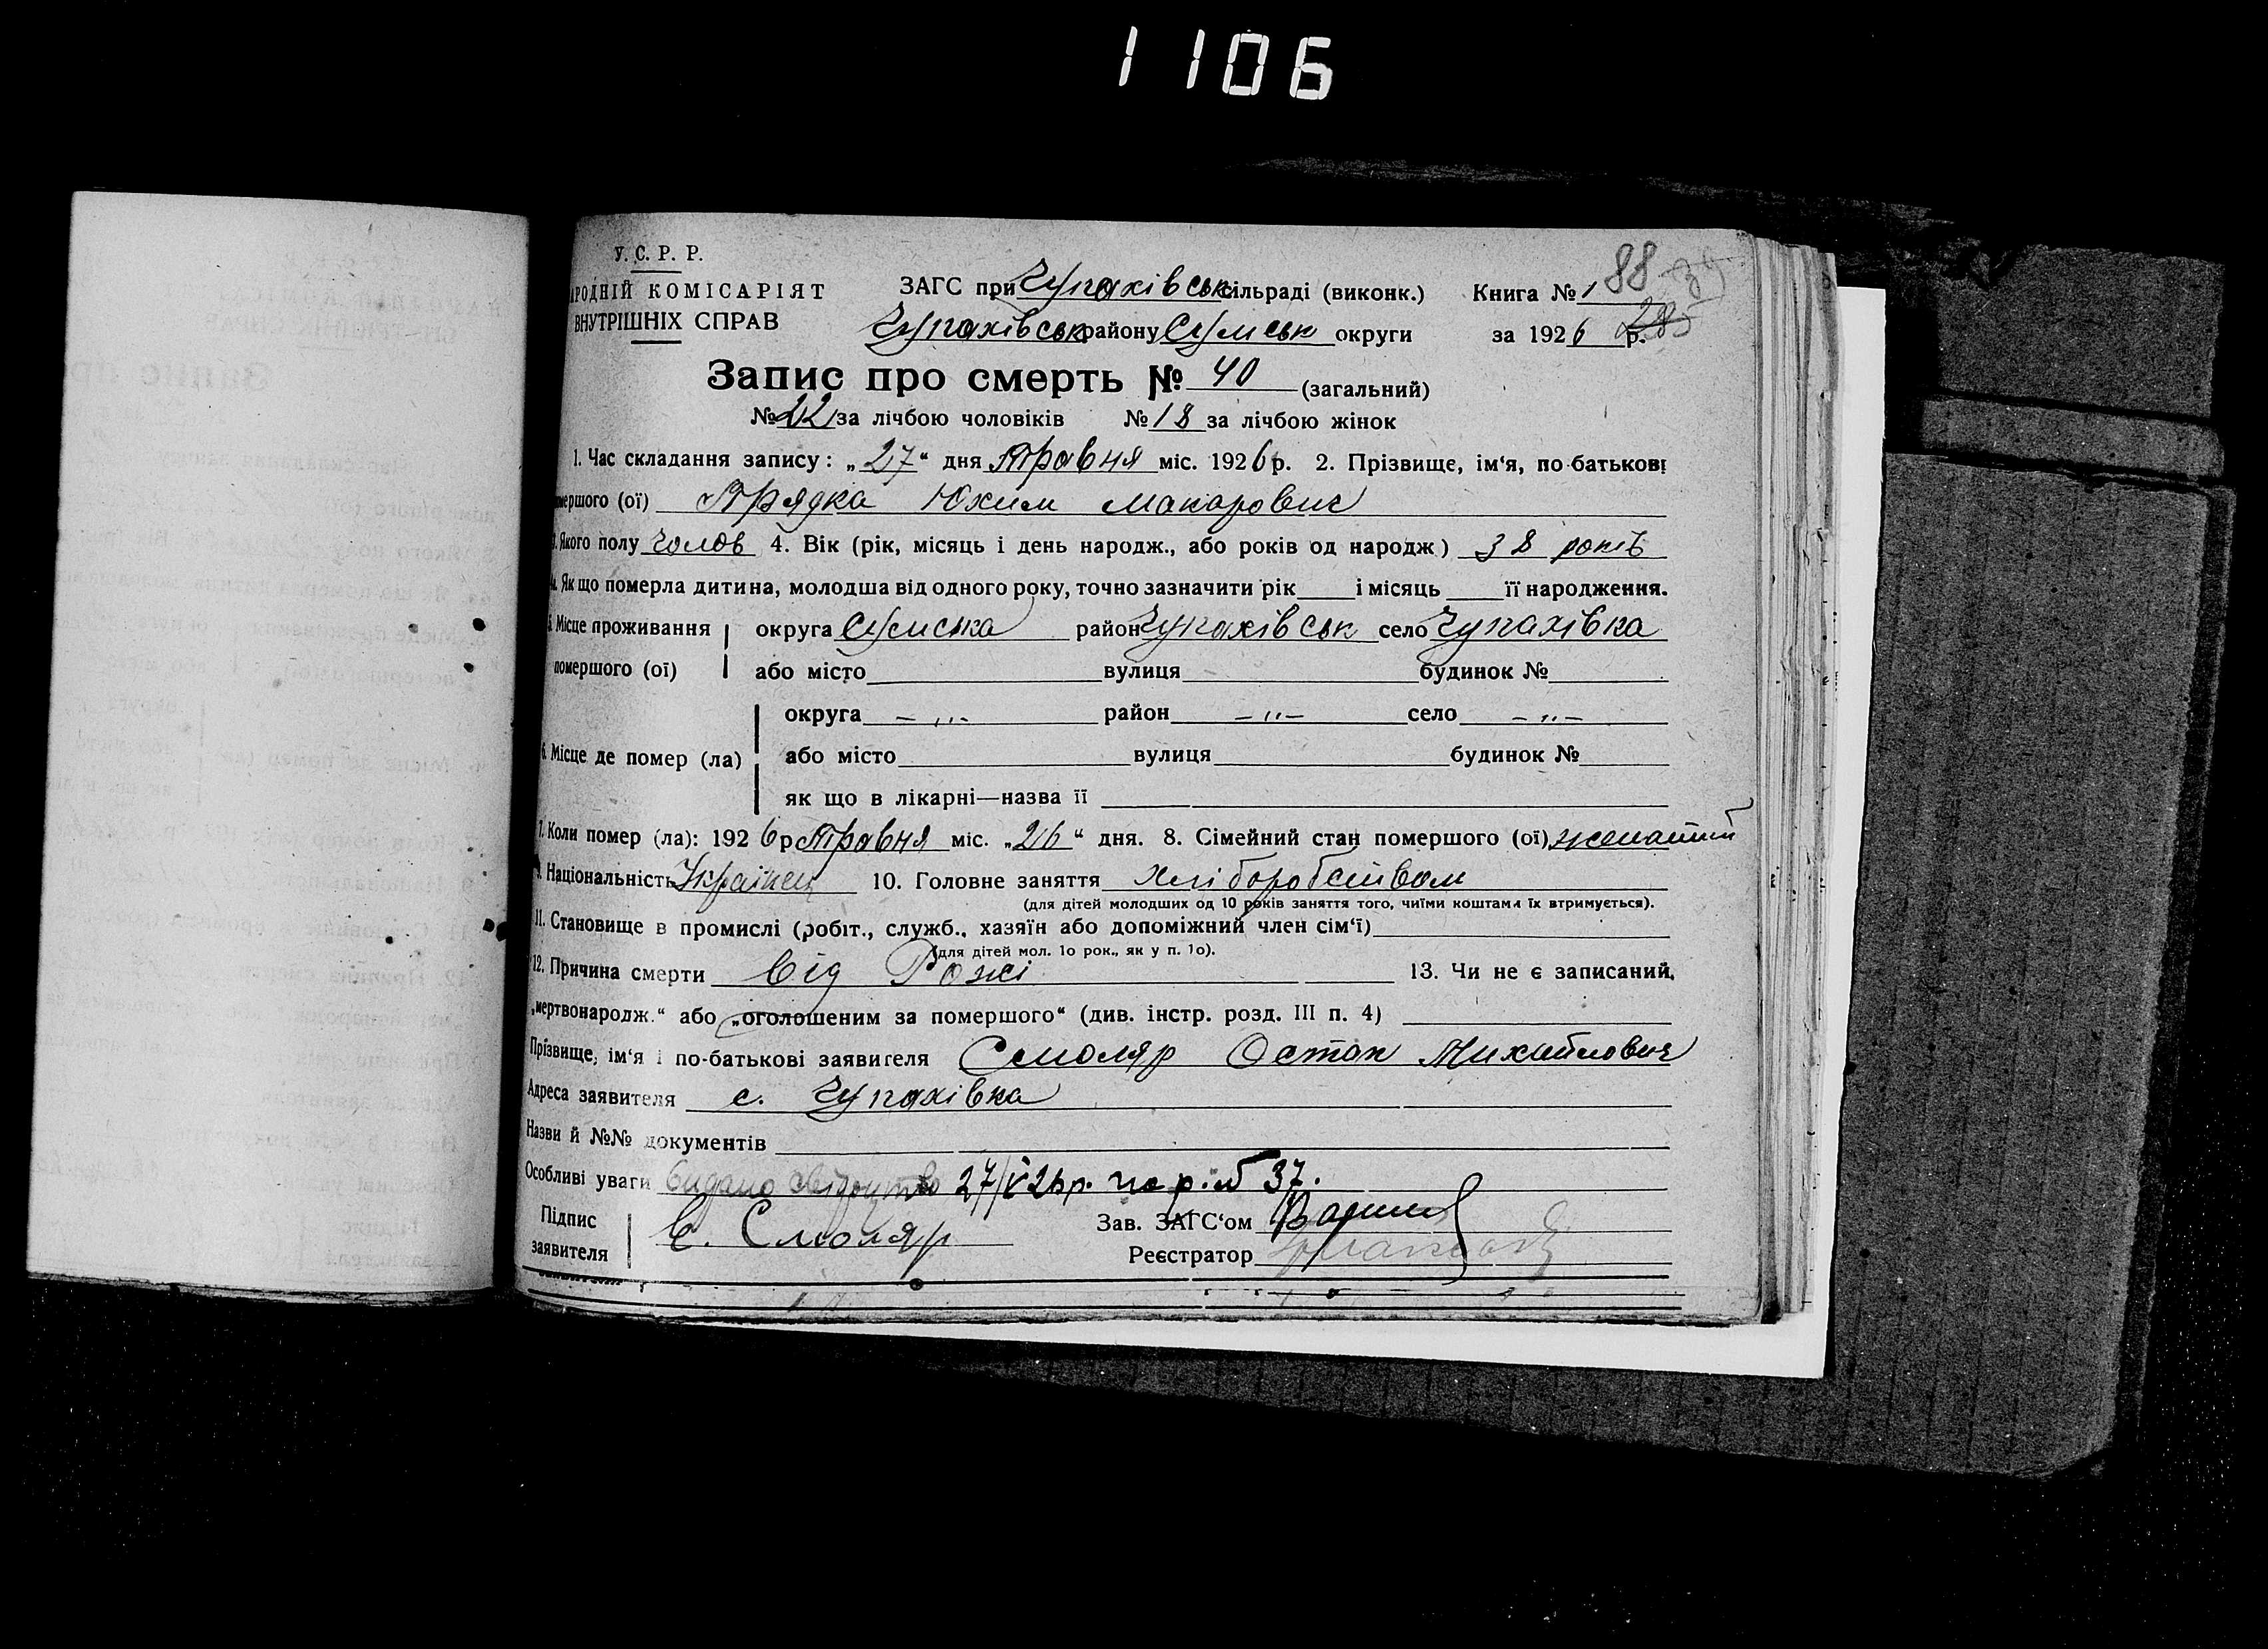 1106
У. С. Р. Р.
АРОДНІЙ КОМІСАРІЯТ
ВНУТРІШНІХ СПРАВ
ЗАГС при Чупахівськ сільраді (виконк.)
Чупахівськ району Сумськ округи
Книга № 1
88 39
285
за 1926 р.
Запис про смерть № 40 (загальний)
№ 22 за лічбою чоловіків № 18 за лічбою жінок
1. Час складання запису: „27“ дня Травня міс. 1926 р. 2. Прізвище, ім‘я, по-батькові
мершого (ої) Прядка Юхим Макарович
3. Якого полу чолов 4. Вік (рік, місяць і день народж., або років од народж) 38 років
4а. Як що померла дитина, молодша від одного року, точно зазначити рік і місяць її народження.
5. Місце проживання округа Сумська район Чупахівськ село Чупахівка
помершого (ої) або місто вулиця будинок №
округа — „ — район — „ — село — „ —
6. Місце де помер (ла) або місто вулиця будинок №
як що в лікарні—назва її
7. Коли помер (ла): 1926 р Травня міс. „26“ дня. 8. Сімейний стан помершого (ої) женатий
9. Національність Українец 10. Головне заняття Хліборобством
(для дітей молодших од 10 років заняття того, чиїми коштами їх втримується).
11. Становище в промислі (робіт., служб., хазяїн або допоміжний член сім‘ї)
(для дітей мол. 1о рок., як у п. 1о).
12. Причина смерти від Рожі 13. Чи не є записаний,
„мертвонародж.“ або „оголошеним за помершого“ (див. інстр. розд. III п. 4)
Прізвище, ім‘я і по-батькові заявителя Смоляр Остап Михайлович
Адреса заявителя с. Чупахівка
Назви й №№ документів
Особливі уваги Видано свідоцтво 27/V 26 р. по р. № 37.
Підпис
заявителя
Є. Смоляр
Зав. ЗАГС‘ом
Реєстратор